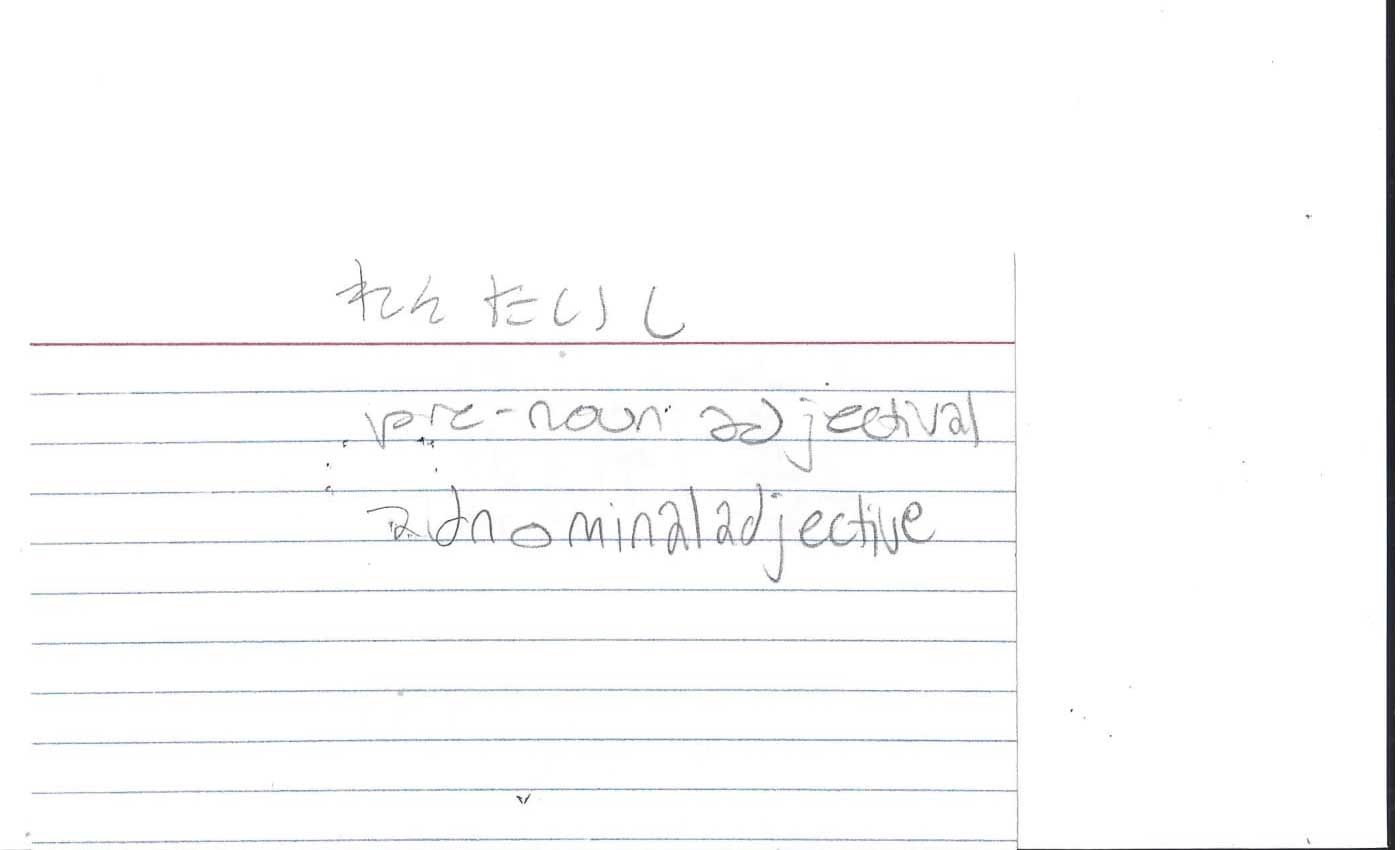 れんたいし
pre-noun adjectival
adnominal adjective